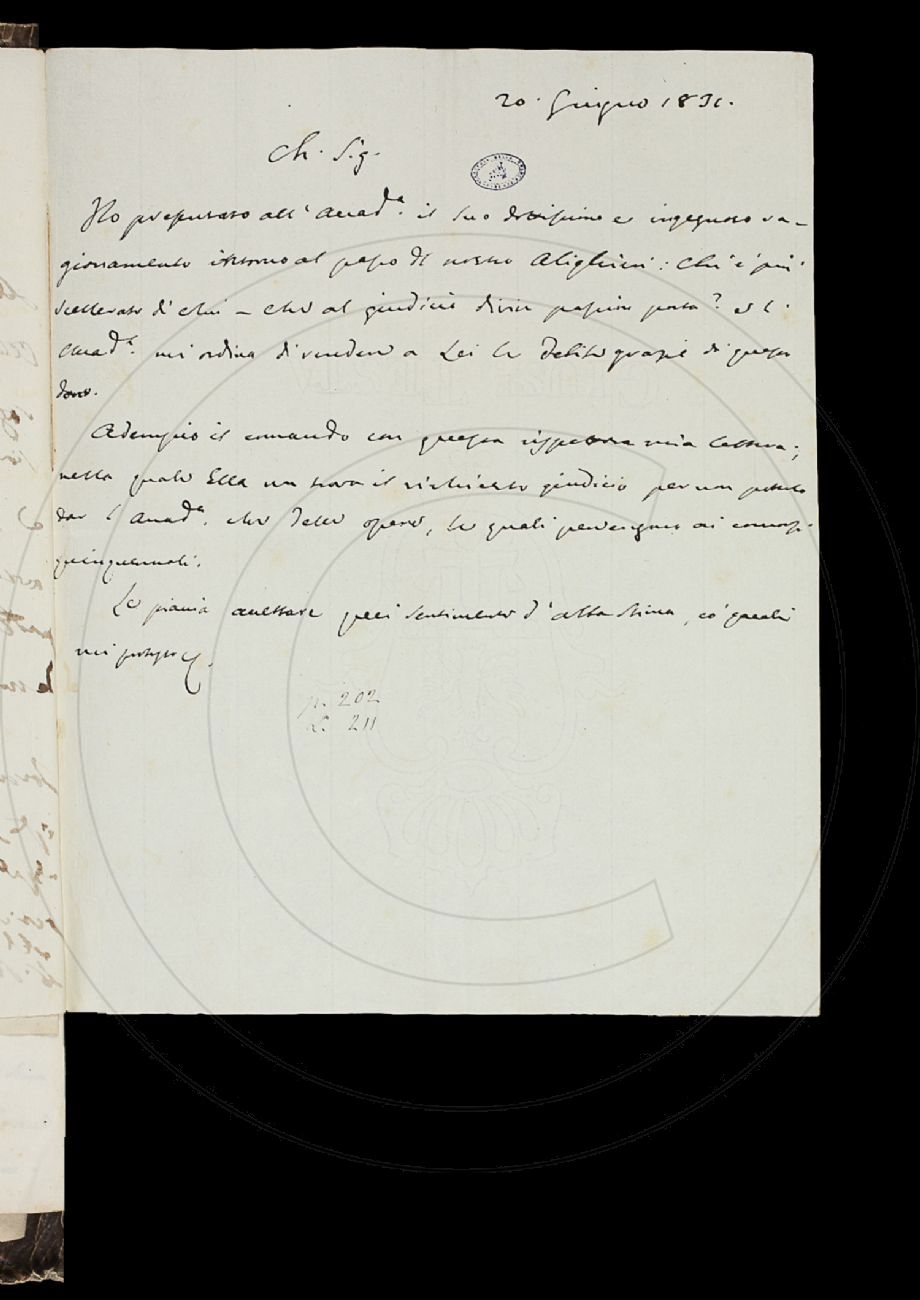 20. Giugno 1831.
Ch. Sig.
Ho presentato all'Accad.a il suo dottissimo e ingegnoso ra-
gionamento intorno al passo del nostro Alighieri: Chi è più
scellerato di colui – che al giudicio divin passion porta? e l'
Accad.a mi ordina di rendere a Lei le debite grazie di questo
dono.
Adempio il comando con questa rispettosa mia lettera;
nella quale Ella non trova il richiesto giudicio per non potere
dar l'Accad.a che delle opere, le quali pervengono ai concorsi
quinquennali.
Le piaccia accettare quei sentimenti d'alta stima, co' quali
mi protesto
p. 202
L. 211